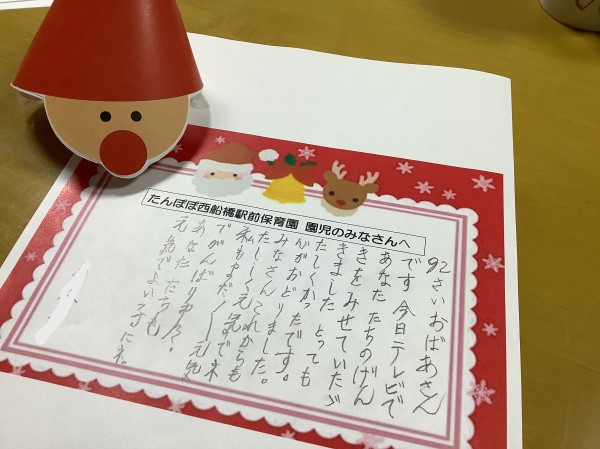 たんぽぽ西船橋駅前保育園 園児のみなさんへ
92さいおばあさん
です 今日テレビで
あなたたちのげん
きをみせていたゞ
きました とっても
たしくかったです。
心がおどりました。
みなさんこれからも
たしくく元気でネ
私もまだ〱元気
でがんばりわす。
あなたたちも
元気でよい子にネ。